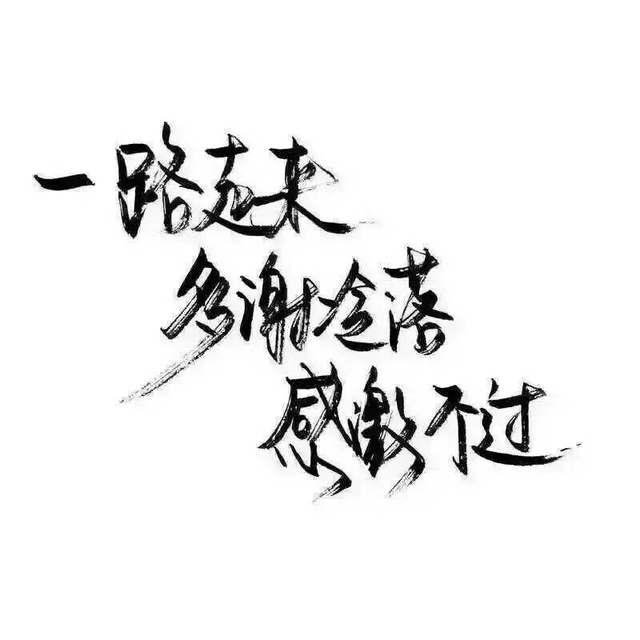 一路走来
多谢冷落
感激不过